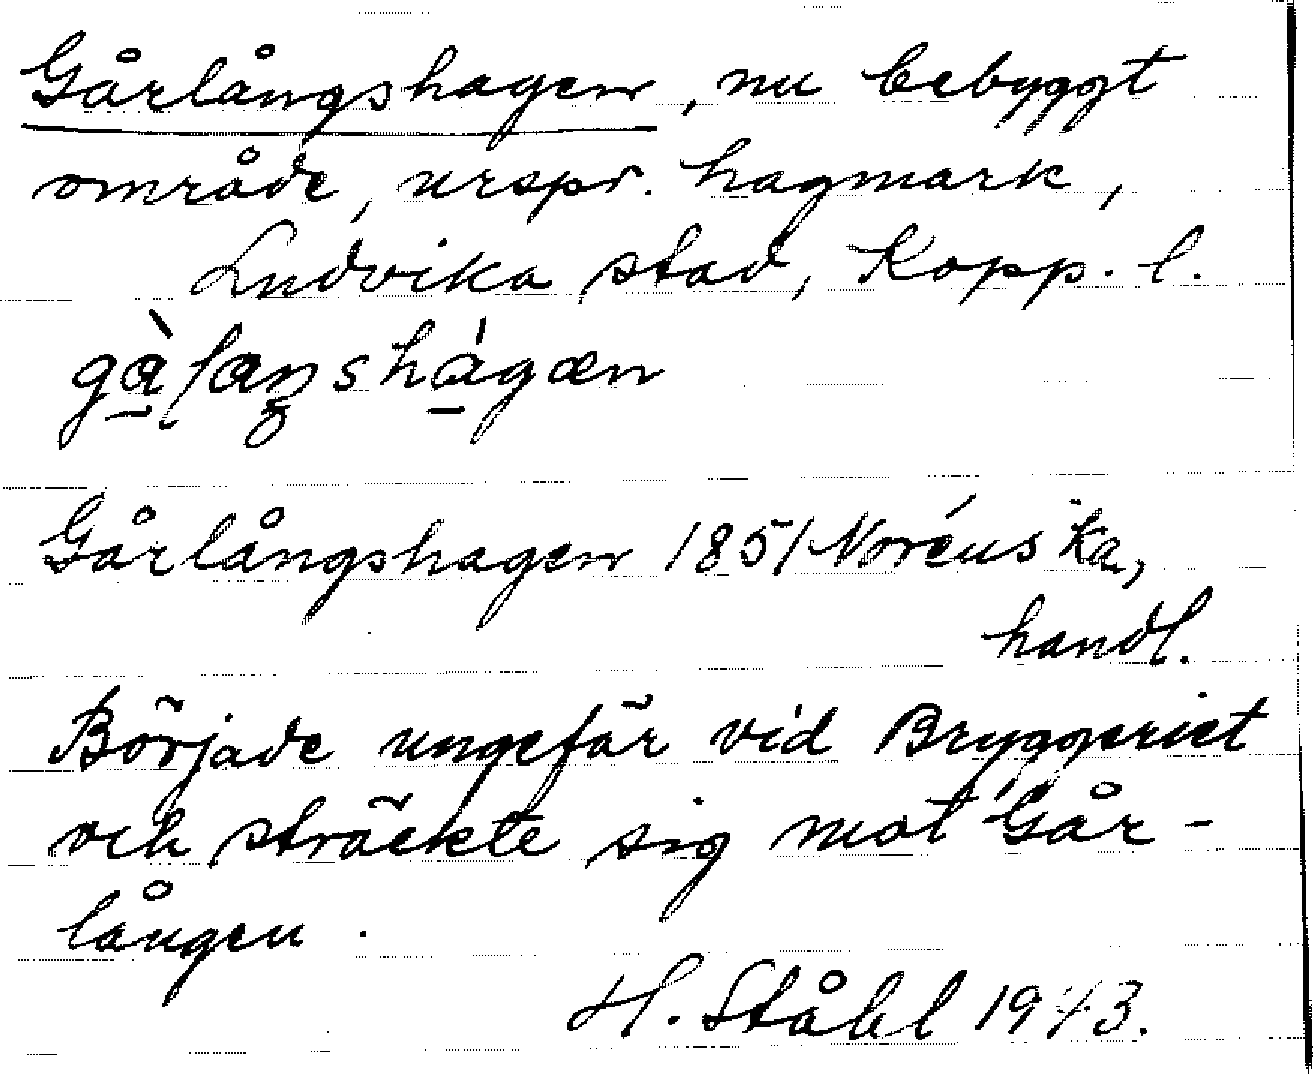 Gårlångshagen, nu bebyggt
område, urspr. hagmark,
Ludvika stad, Kopp. l.
Gårlångshagen 1851 Noréns ka,
handl.
Började ungefär vid Bryggeriet
och sträckte sig mot Går-
lången.
H. Ståhl 1943.